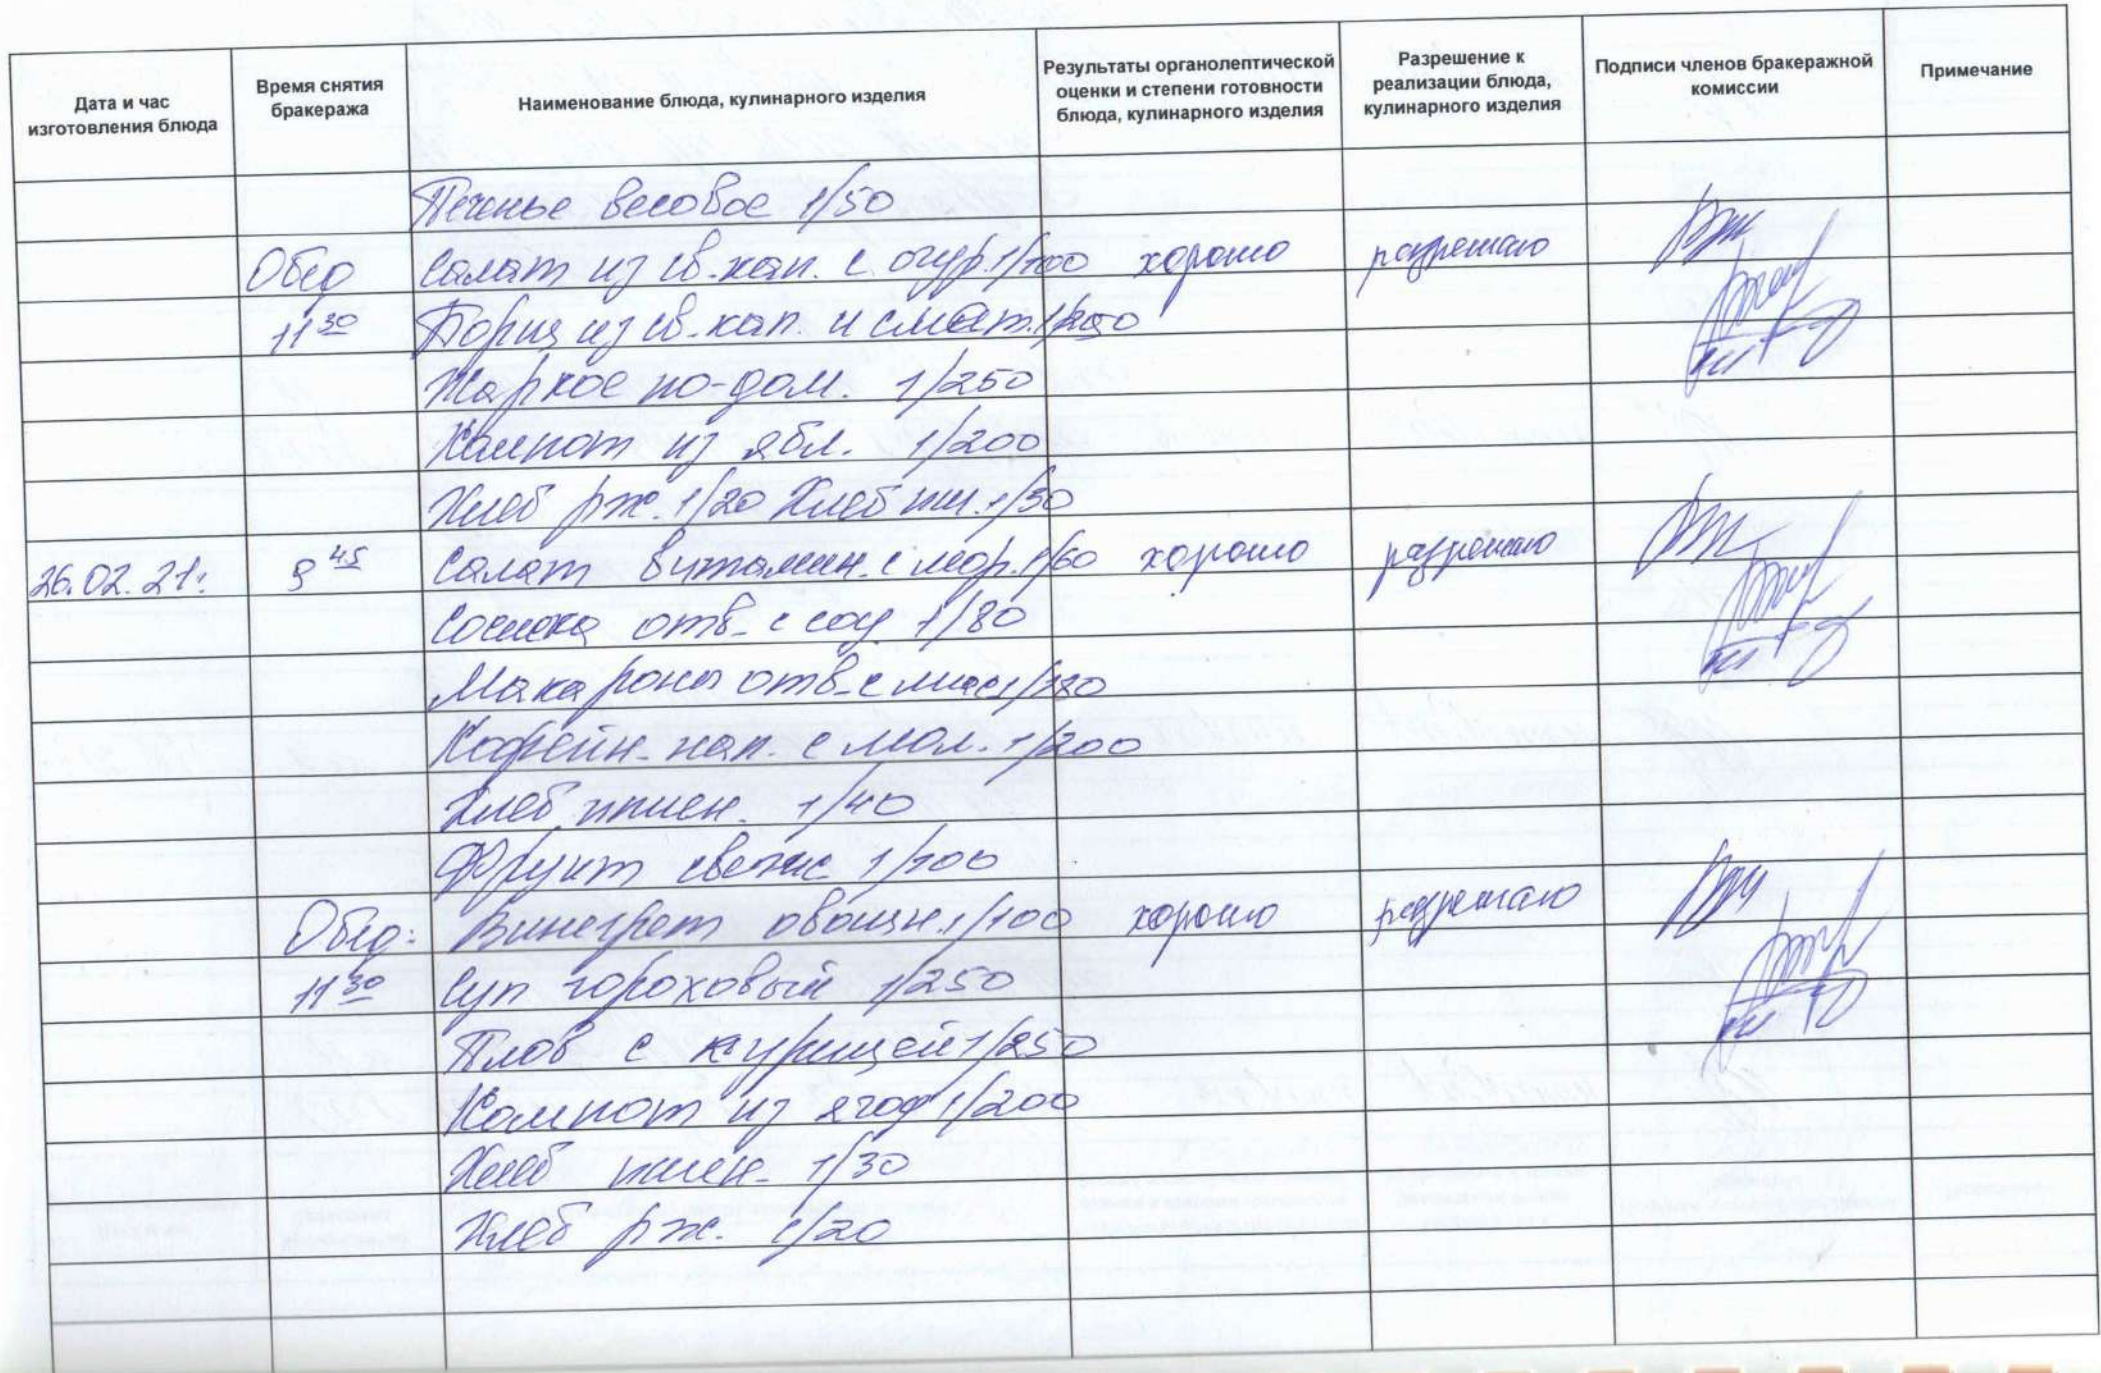 Дата и час
изготовления блюда
Время снятия
бракеража
Наименование блюда, кулинарного изделия
Результаты органолептической
оценки и степени готовности
блюда, кулинарного изделия
Разрешение к
реализации блюда,
кулинарного изделия
Подписи членов бракеражной
комиссии
Примечание
Печенье весовое 1/50
Обед Салат из св. кап. с огур. 1/100 хорошо разрешаю
11 30 Борщ из св. кап. и смет. 1/250
Жаркое по-дом. 1/250
Компот из ябл. 1/200
Хлеб рж. 1/20 Хлеб пш. 1/30
26.02.21г. 9 45 Салат витамин. с мор. 1/60 хорошо разрешаю
Сосиска отв. с соу 1/80
Макароны отв. с мас 1/180
Кофейн. нап. с мол. 1/200
Хлеб пшен. 1/40
Фрукт свеж 1/100
Обед: Винегрет овощн. 1/100 хорошо разрешаю
11 30 Суп гороховый 1/250
Плов с курицей 1/250
Компот из ягод 1/200
Хлеб пшен. 1/30
Хлеб рж. 1/20